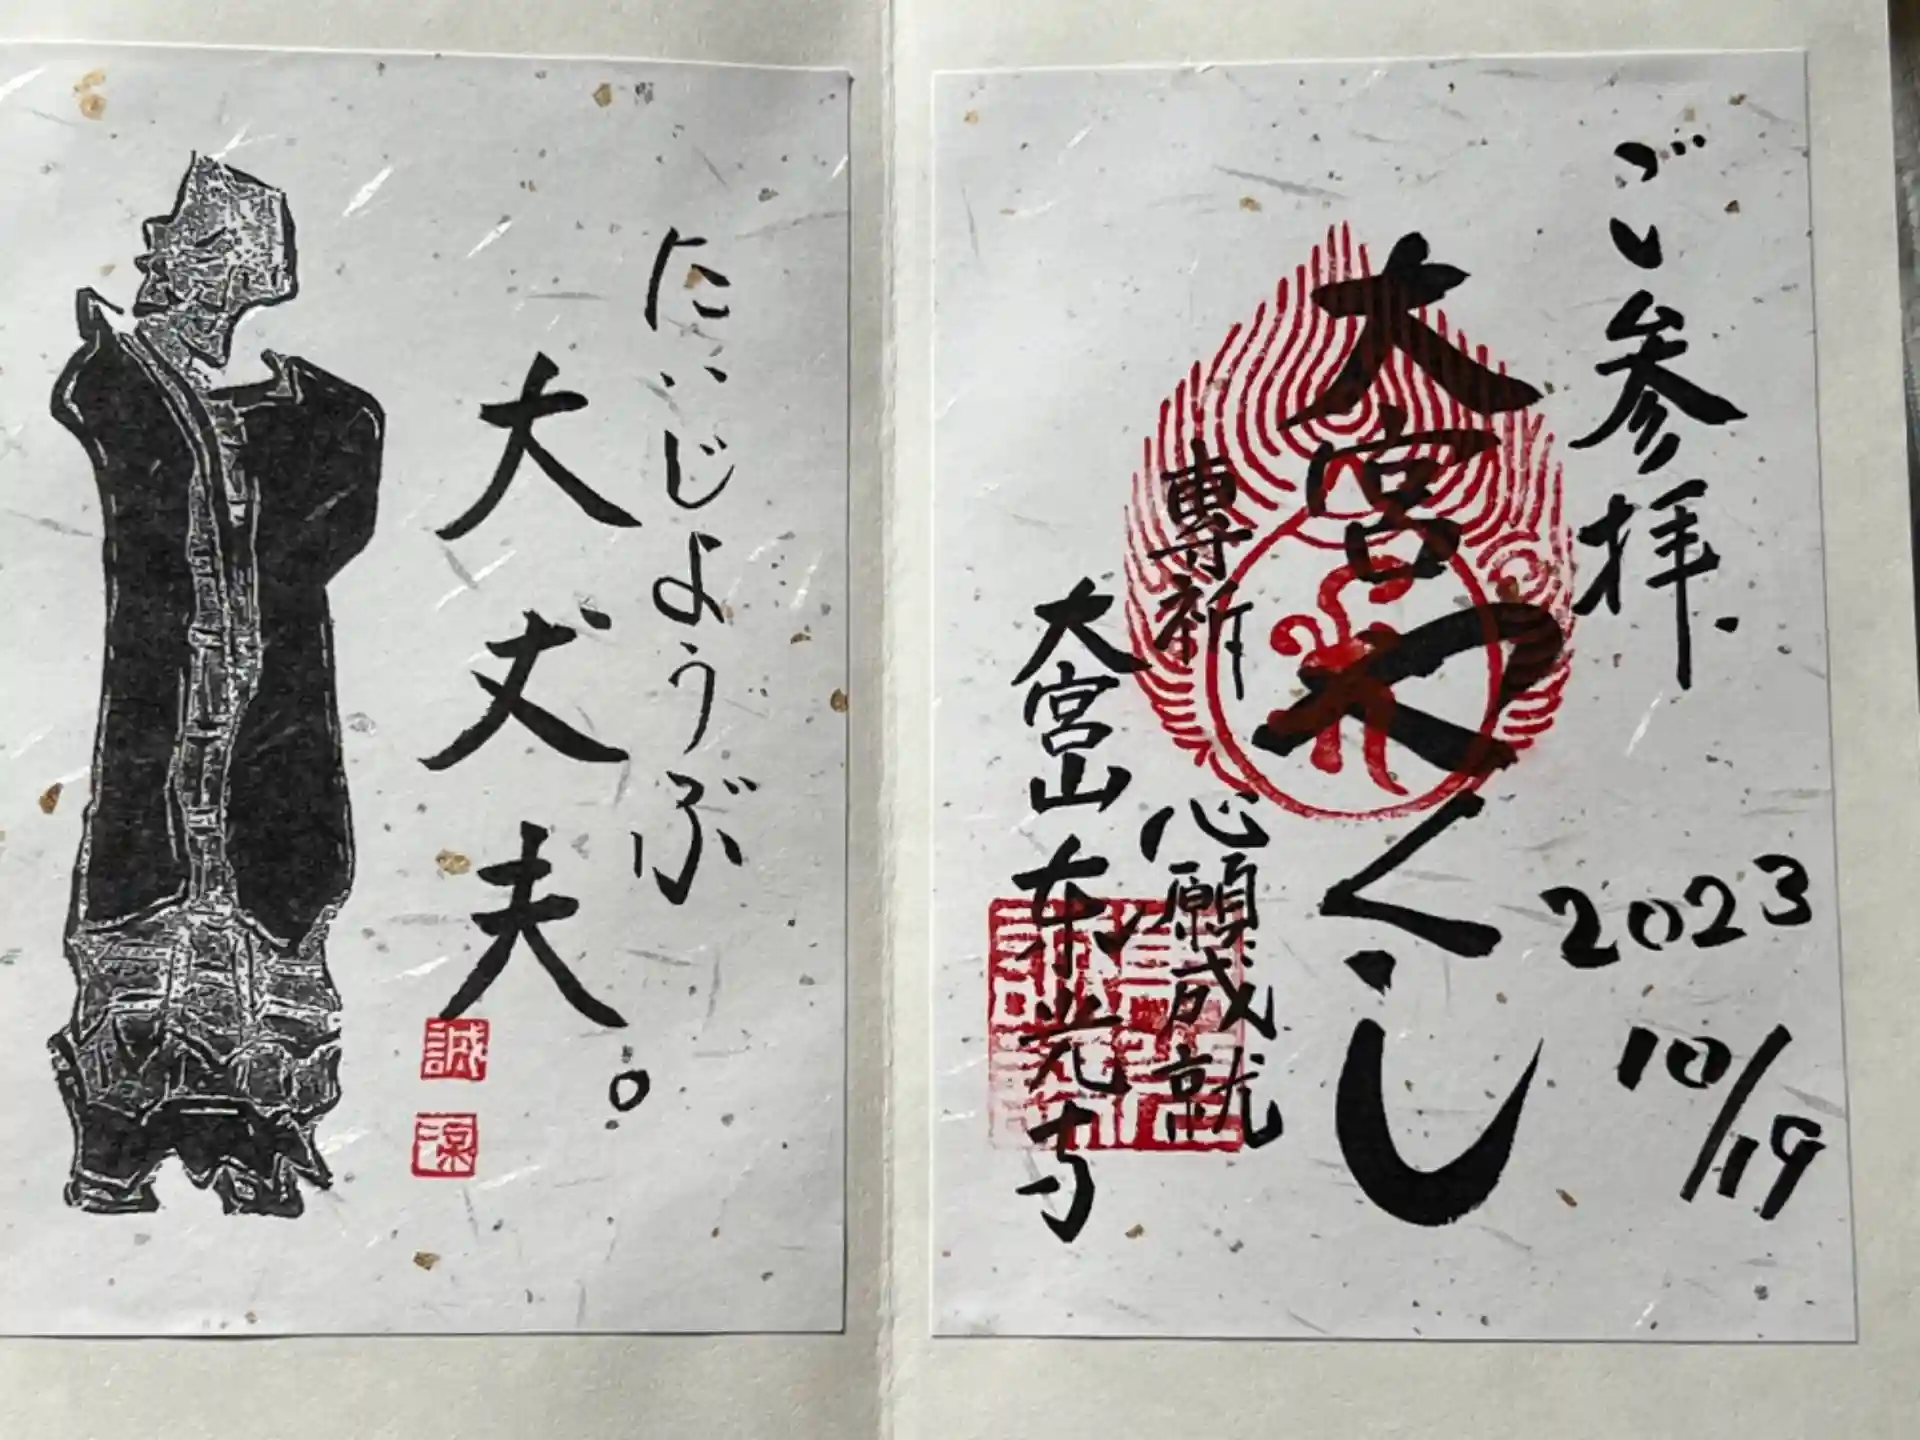 ご参拝
2023
10/19
大宮やくし
專祈 心願成就
大宮山 东光寺
だいじょうぶ
大丈夫。
誠